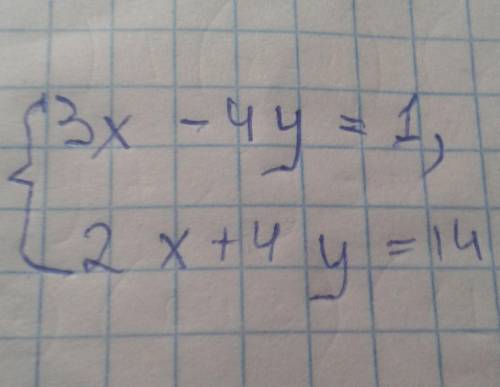 3x - 4y = 1,
2x + 4y = 14